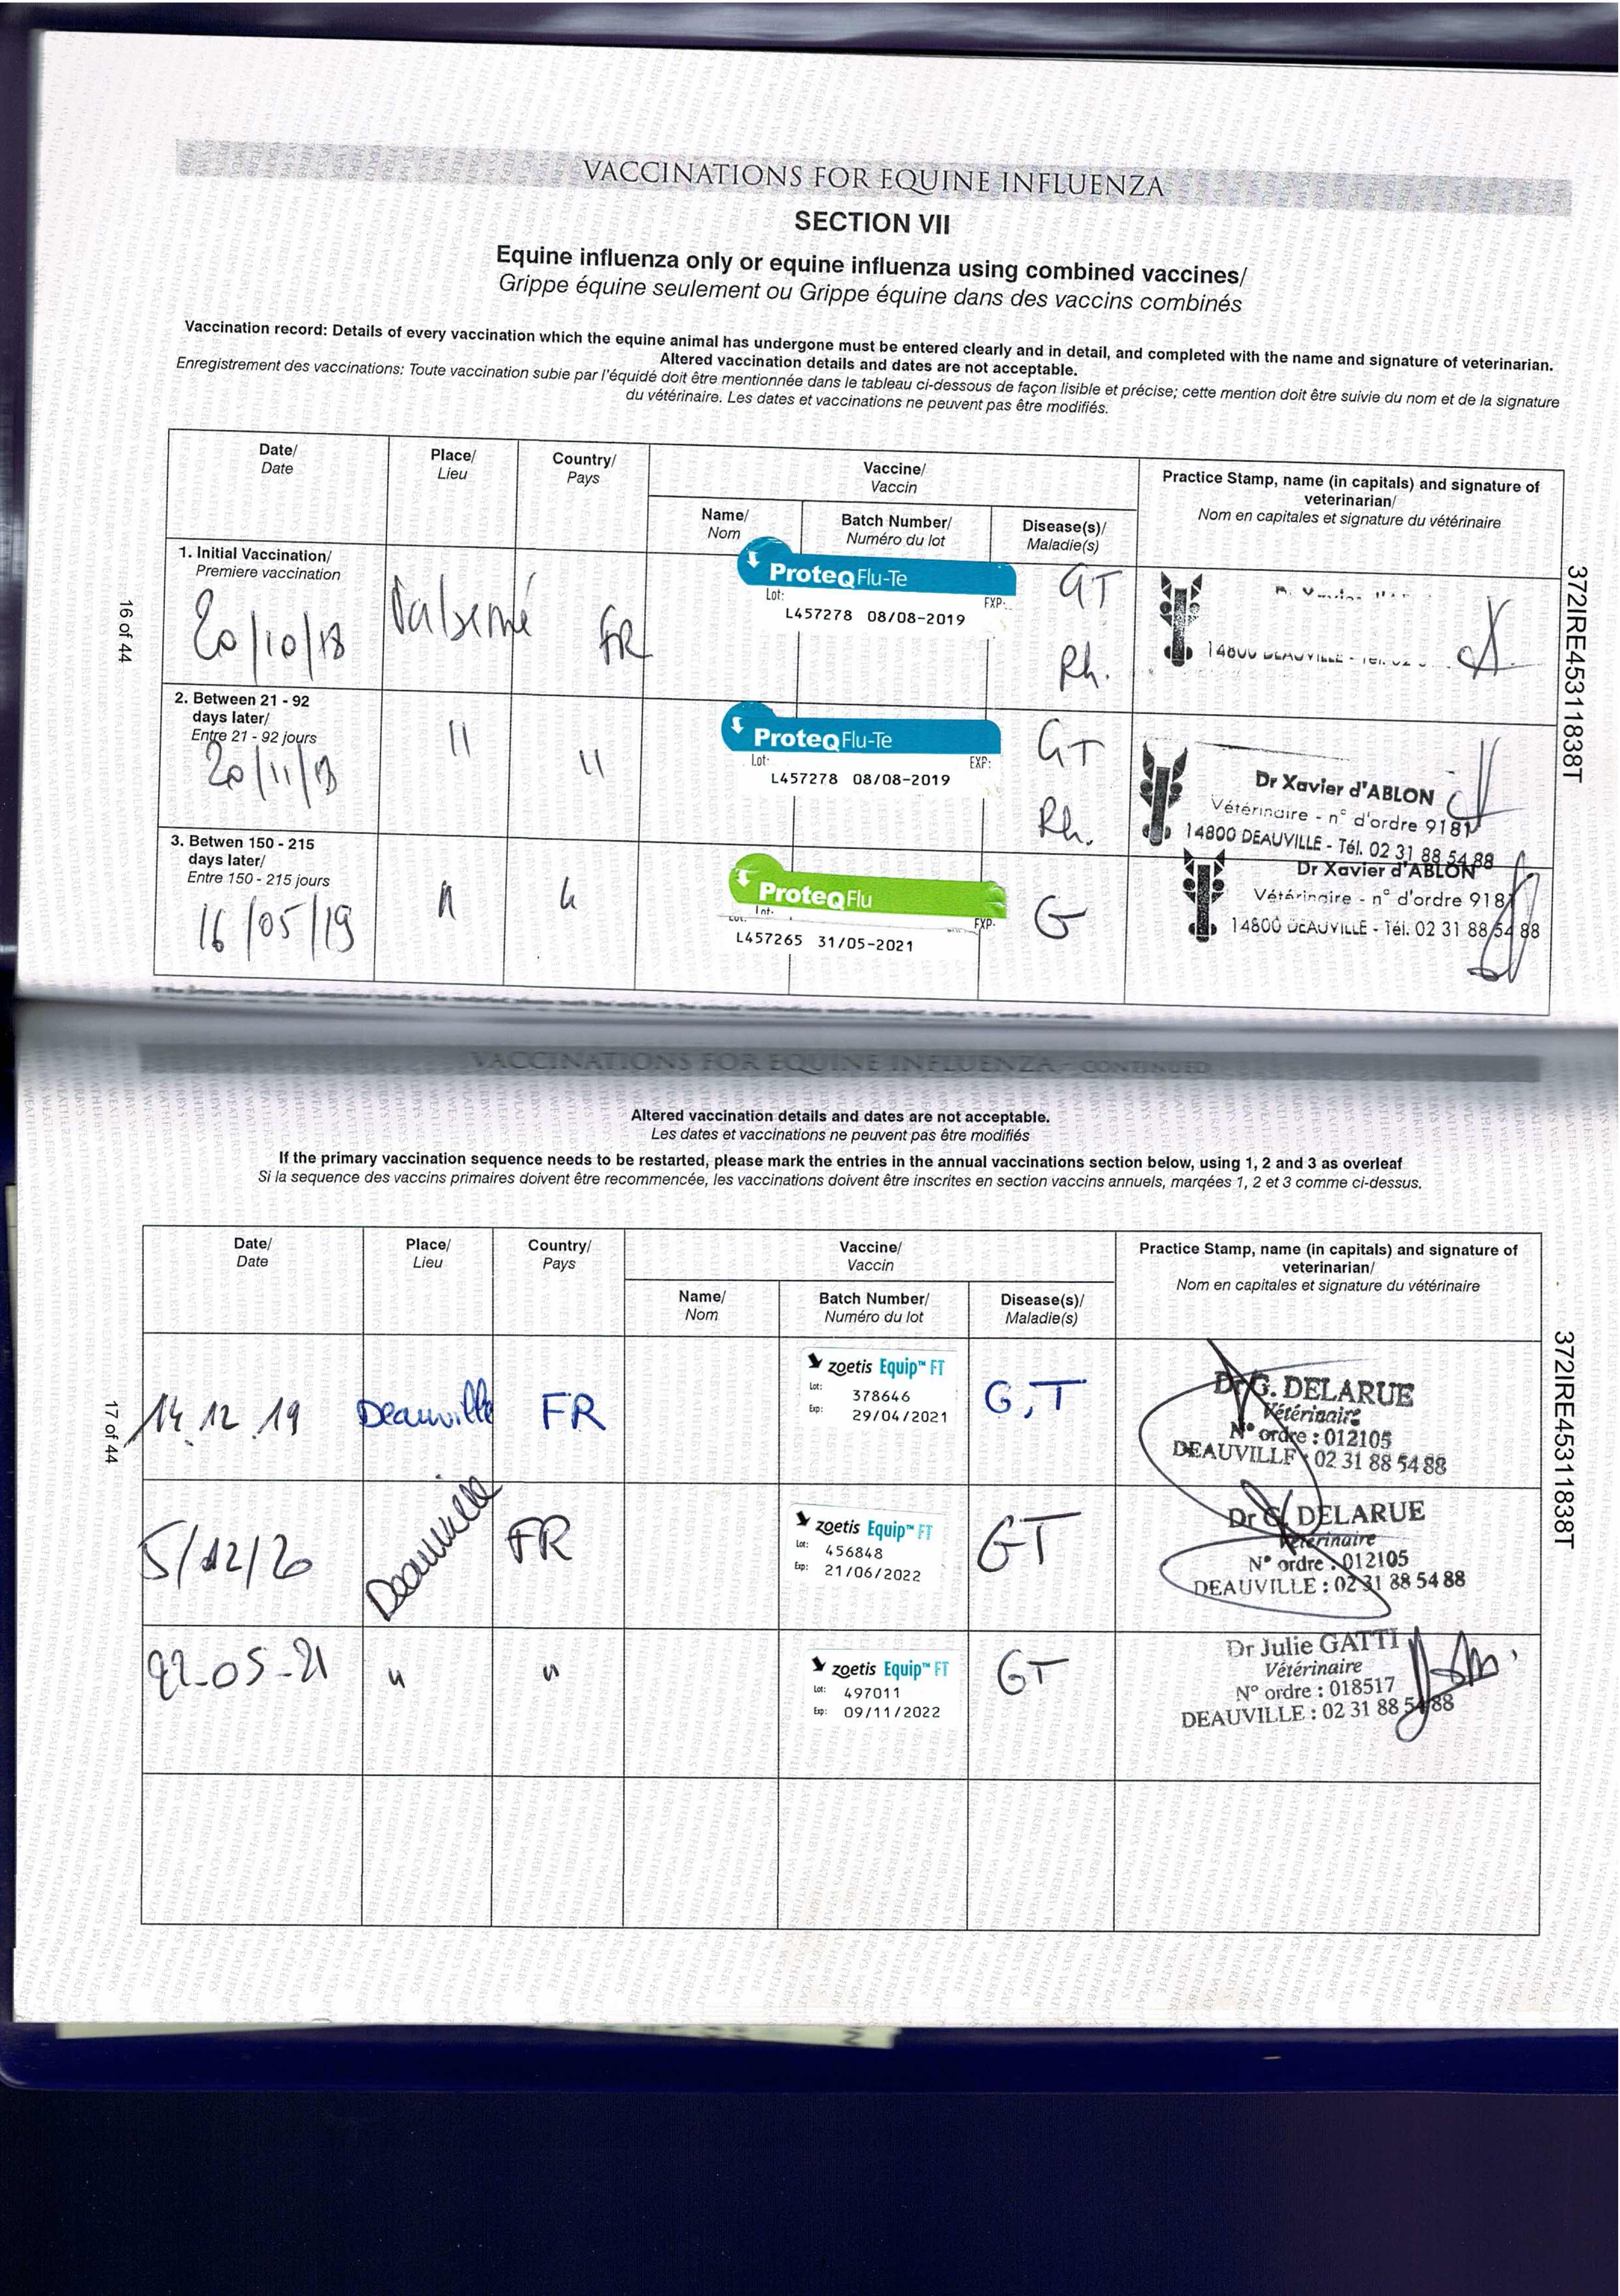 VACCINATIONS FOR EQUINE INFLUENZA
SECTION VII
Equine influenza only or equine influenza using combined vaccines/
Grippe équine seulement ou Grippe équine dans des vaccins combinés
Vaccination record: Details of every vaccination which the equine animal has undergone must be entered clearly and in detail, and completed with the name and signature of veterinarian.
Altered vaccination details and dates are not acceptable.
Enregistrement des vaccinations: Toute vaccination subie par l'équidé doit être mentionnée dans le tableau ci-dessous de façon lisible et précise; cette mention doit être suivie du nom et de la signature
du vétérinaire. Les dates et vaccinations ne peuvent pas être modifiés.
Date/
Date
Place/
Lieu
Country/
Pays
Vaccine/
Vaccin
Name/
Nom
Batch Number/
Numéro du lot
Disease(s)/
Maladie(s)
Practice Stamp, name (in capitals) and signature of
veterinarian/
Nom en capitales et signature du vétérinaire
1. Initial Vaccination/
Premiere vaccination
20/10/18
FR
ProteQ Flu-Te
Lot:
EXP:
L457278 08/08-2019
GT
Rh.
14800 DEAUVILLE - Tél. 02
2. Between 21 - 92
days later/
Entre 21 - 92 jours
20/11/18
"
"
ProteQ Flu-Te
Lot:
EXP:
L457278 08/08-2019
GT
Rh.
Dr Xavier d'ABLON
Vétérinaire - n° d'ordre 9181
14800 DEAUVILLE - Tél. 02 31 88 54 88
3. Betwen 150 - 215
days later/
Entre 150 - 215 jours
16/05/19
"
"
ProteQ Flu
Lot:
EXP:
L457265 31/05-2021
G
Dr Xavier d'ABLON
Vétérinaire - n° d'ordre 9181
14800 DEAUVILLE - Tél. 02 31 88 54 88
16 of 44
372IRE45311838T
VACCINATIONS FOR EQUINE INFLUENZA - CONTINUED
Altered vaccination details and dates are not acceptable.
Les dates et vaccinations ne peuvent pas être modifiés
If the primary vaccination sequence needs to be restarted, please mark the entries in the annual vaccinations section below, using 1, 2 and 3 as overleaf
Si la sequence des vaccins primaires doivent être recommencée, les vaccinations doivent être inscrites en section vaccins annuels, marqées 1, 2 et 3 comme ci-dessus.
Date/
Date
Place/
Lieu
Country/
Pays
Vaccine/
Vaccin
Name/
Nom
Batch Number/
Numéro du lot
Disease(s)/
Maladie(s)
Practice Stamp, name (in capitals) and signature of
veterinarian/
Nom en capitales et signature du vétérinaire
14.12.19
Deauville
FR
zoetis Equip™ FT
Lot: 378646
Exp: 29/04/2021
G,T
Dr G. DELARUE
Vétérinaire
N° ordre : 012105
DEAUVILLE : 02 31 88 54 88
5/12/20
Deauville
FR
zoetis Equip™ FT
Lot: 456848
Exp: 21/06/2022
GT
Dr G. DELARUE
Vétérinaire
N° ordre : 012105
DEAUVILLE : 02 31 88 54 88
22-05-21
"
"
zoetis Equip™ FT
Lot: 497011
Exp: 09/11/2022
GT
Dr Julie GATTI
Vétérinaire
N° ordre : 018517
DEAUVILLE : 02 31 88 54 88
17 of 44
372IRE45311838T